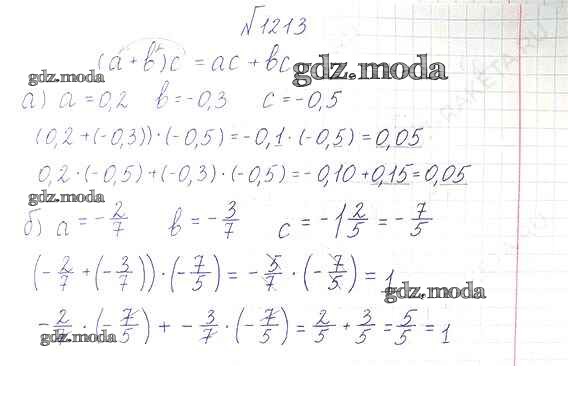 №1213
(a + b)c = ac + bc
gdz.moda
gdz.moda
а) a = 0,2 b = -0,3 c = -0,5
(0,2 + (-0,3)) · (-0,5) = -0,1 · (-0,5) = 0,05
0,2 · (-0,5) + (-0,3) · (-0,5) = -0,10 + 0,15 = 0,05
gdz.moda
б) a = -2/7 b = -3/7 c = -1 2/5 = -7/5
(-2/7 + (-3/7)) · (-7/5) = -5/7 · (-7/5) = 1
gdz.moda
-2/7 · (-7/5) + -3/7 · (-7/5) = 2/5 + 3/5 = 5/5 = 1
gdz.moda